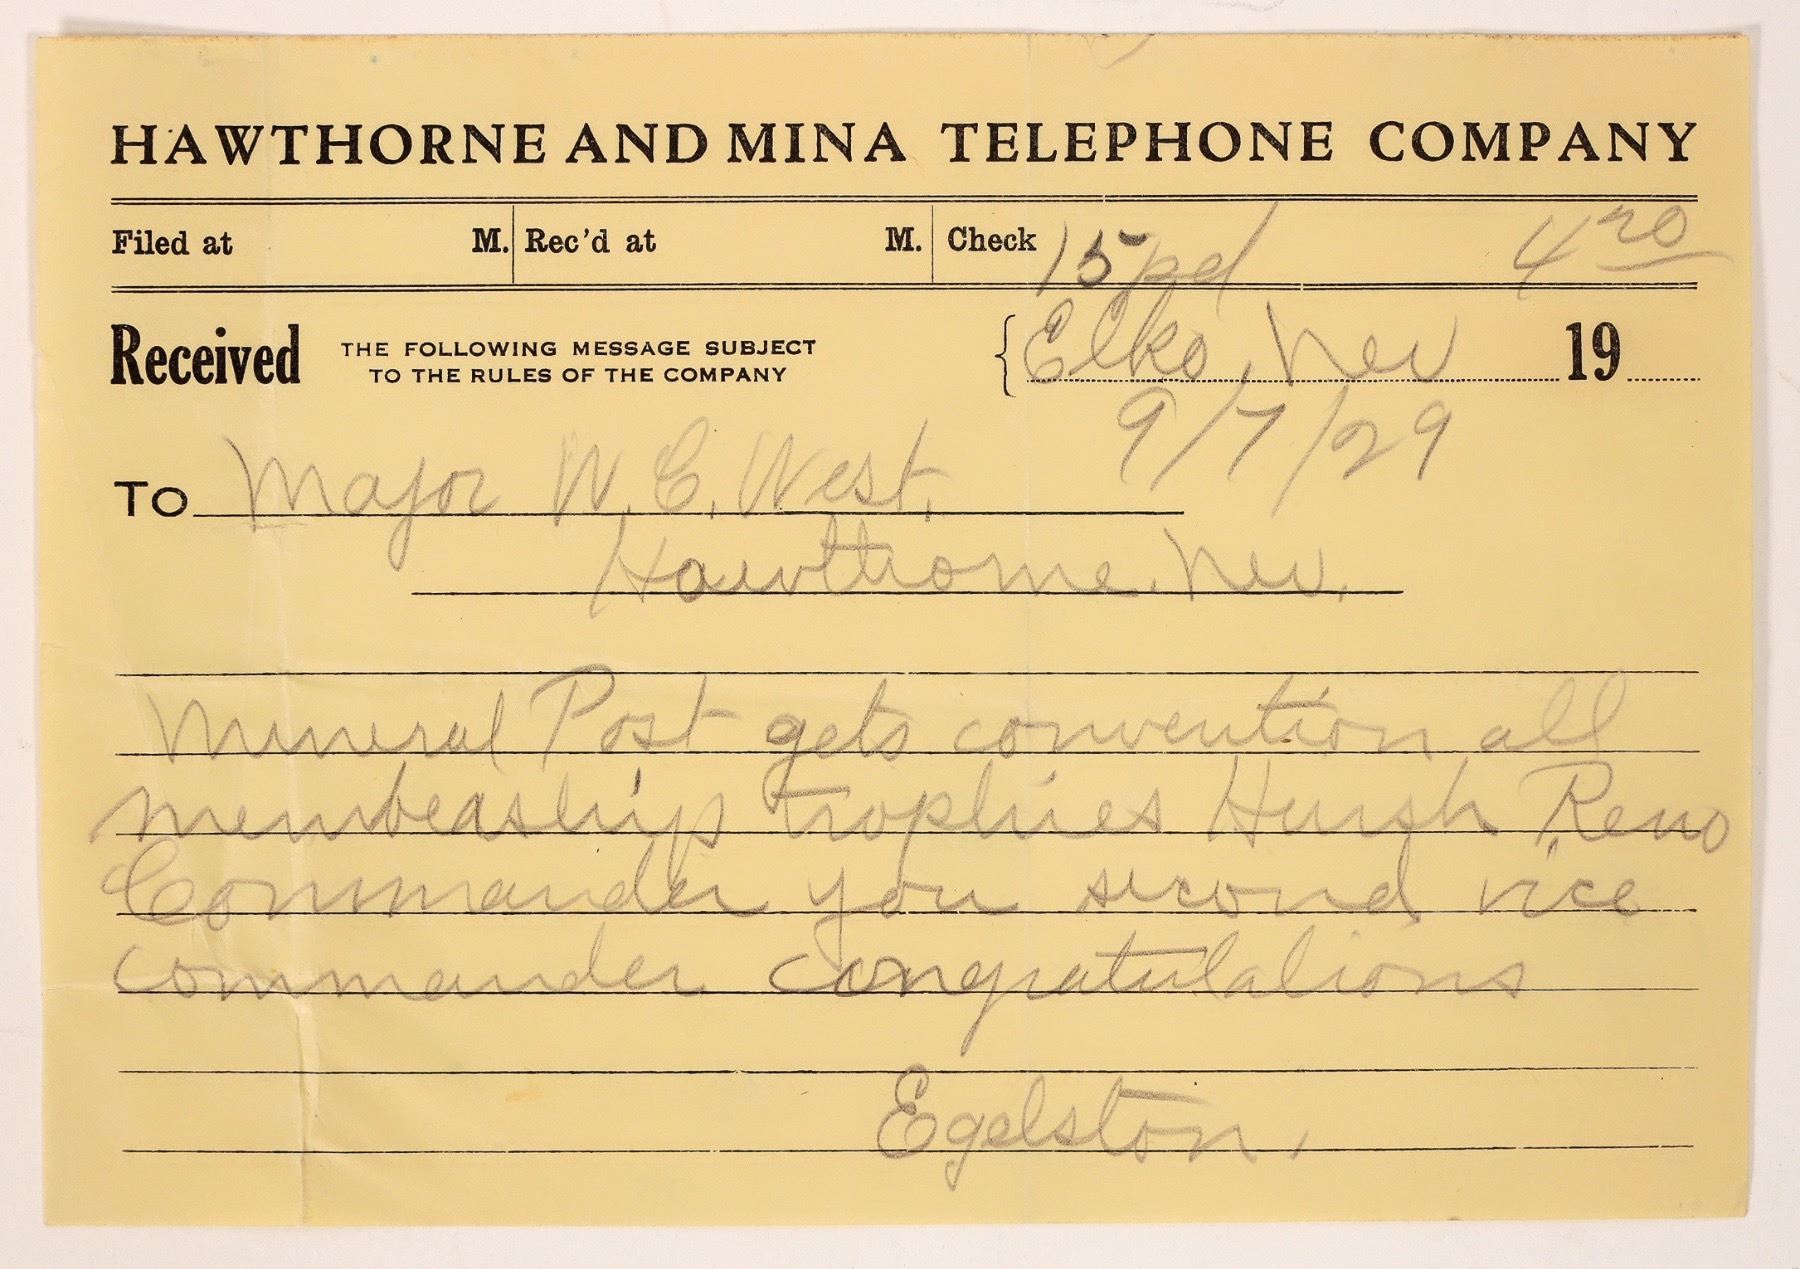 HAWTHORNE AND MINA TELEPHONE COMPANY
Filed at M. Rec'd at M. Check 15 pd 4 20
Received THE FOLLOWING MESSAGE SUBJECT TO THE RULES OF THE COMPANY { Elko, Nev 19
9/7/29
To Major W. C. West.
Hawthorne. Nev.
Mineral Post gets convention all
membership trophies Hursh Reno
Commander you second vice
commander congratulations
Egelston.